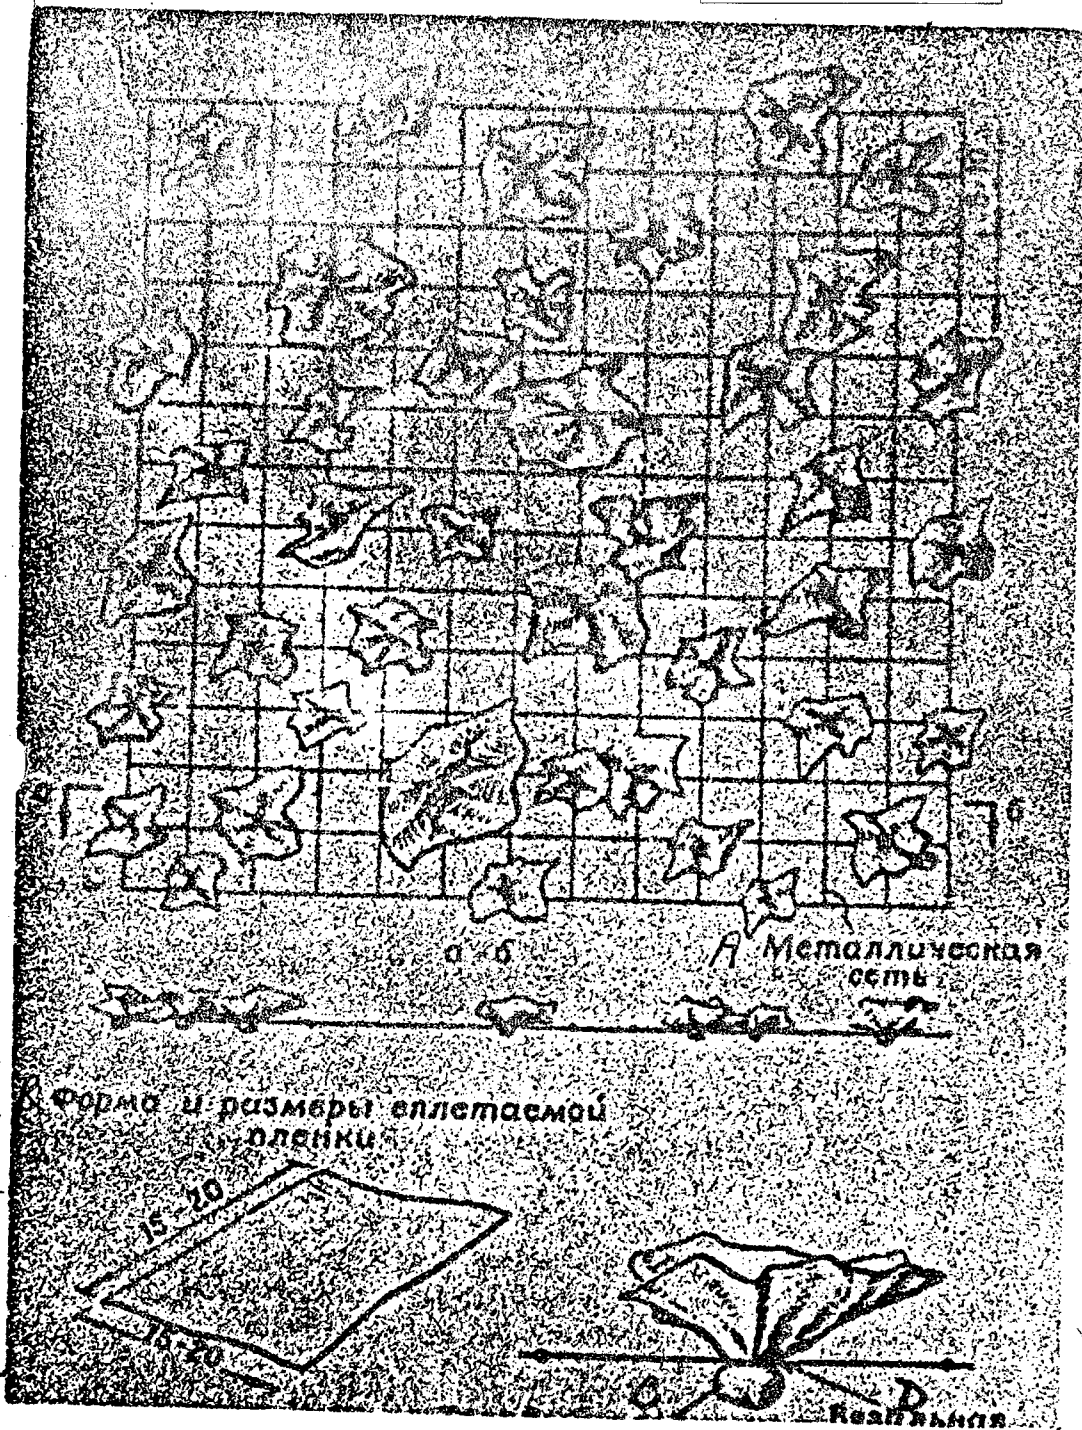 б
а-б
А Металлическая
сеть
В Форма и размеры вплетаемой
пленки
15-20
15-20
D
Вязальная